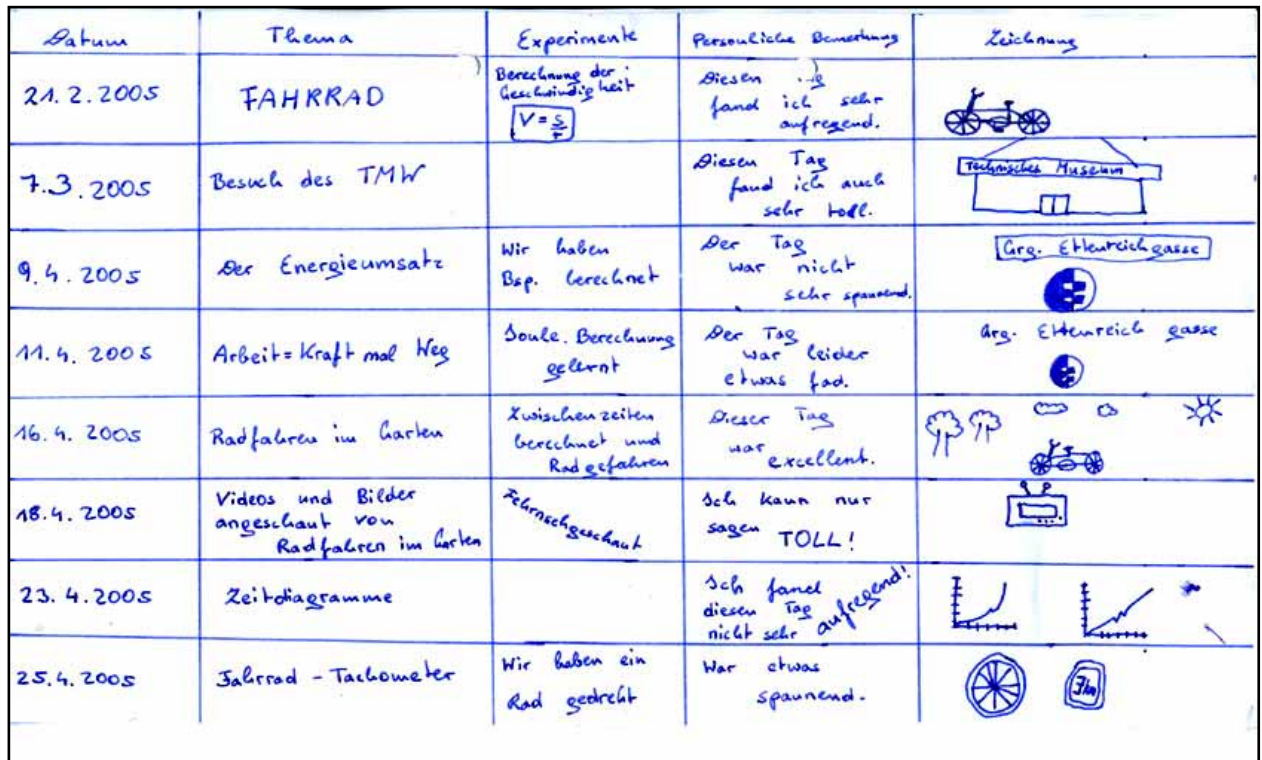 Datum Thema Experimente Persönliche Bemerkung Zeichnung
21.2.2005
FAHRRAD
Berechnung der
Geschwindigkeit
V = s/t
Diesen
fand ich sehr
aufregend.
7.3.2005
Besuch des TMW
Diesen Tag
fand ich auch
sehr toll.
Technisches Museum
9.4.2005
Der Energieumsatz
Wir haben
Bsp. berechnet
Der Tag
war nicht
sehr spannend.
Grg. Ettenreichgasse
11.4.2005
Arbeit=Kraft mal Weg
Joule. Berechnung
gelernt
Der Tag
war leider
etwas fad.
Grg. Ettenreich gasse
16.4.2005
Radfahren im Garten
Zwischenzeiten
berechnet und
Radgefahren
Dieser Tag
war
excellent.
18.4.2005
Videos und Bilder
angeschaut von
Radfahren im Garten
Fehrnsehgeschaut
Ich kann nur
sagen TOLL!
23.4.2005
Zeitdiagramme
Ich fand
diesen Tag
nicht sehr aufregend!
25.4.2005
Fahrrad - Tachometer
Wir haben ein
Rad gedreht
War etwas
spannend.